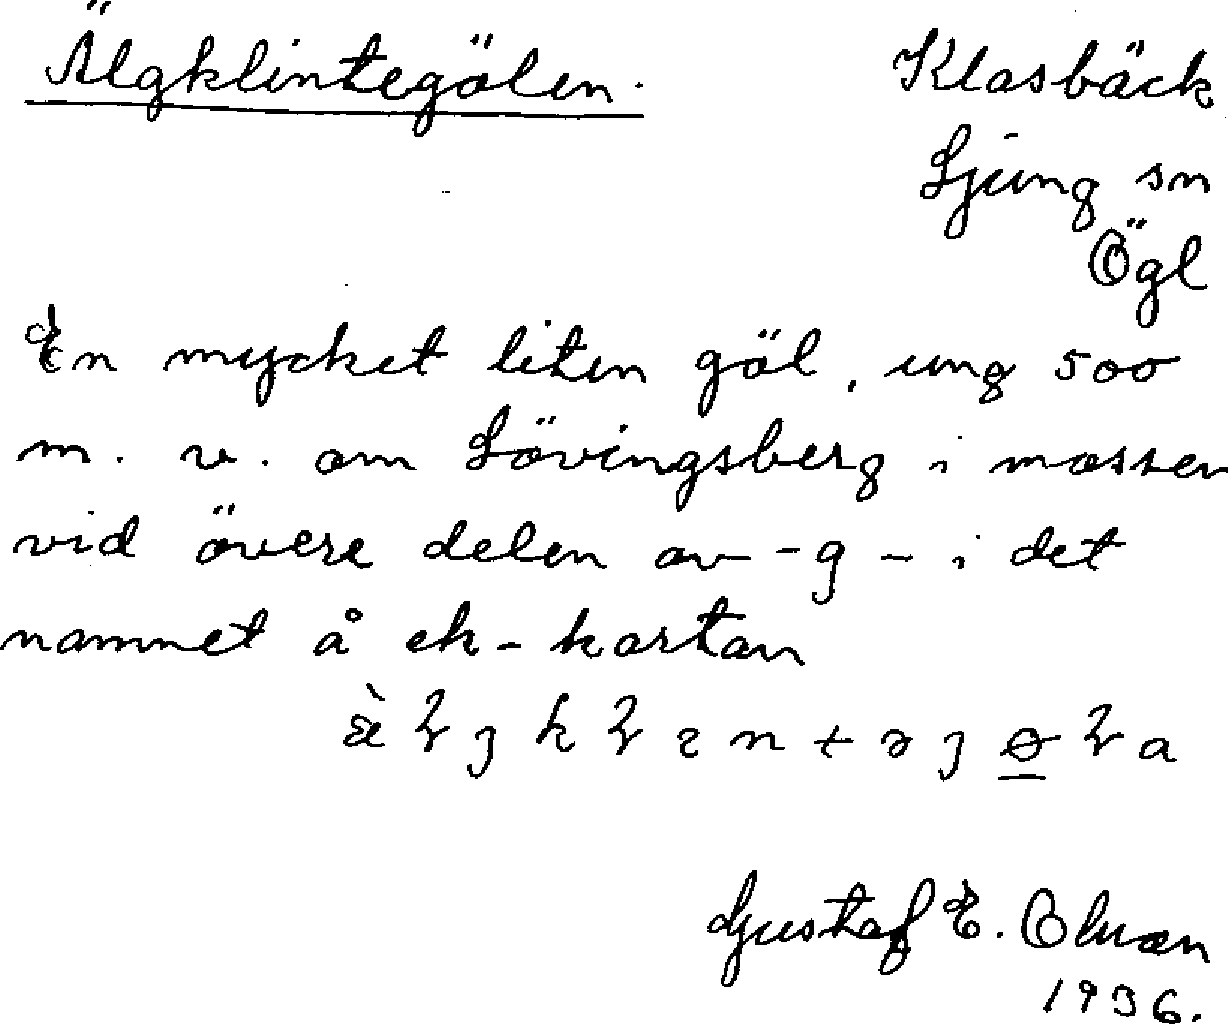 Älgklintegölen.
Klasbäck
Ljung sn
Ögl
En mycket liten göl, ung 500
m. v. om Lövingsberg i mossen
vid övere delen av -g- i det
namnet å ek-kartan
Gustaf E.
1936.